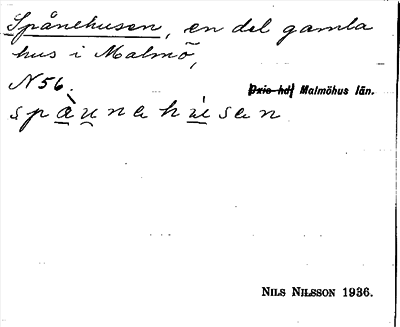 Spånehusen, en del gamla
hus i Malmö,
N 56.
Oxie hd, Malmöhus län.
spàu̯nehúsen
NILS NILSSON 1936.